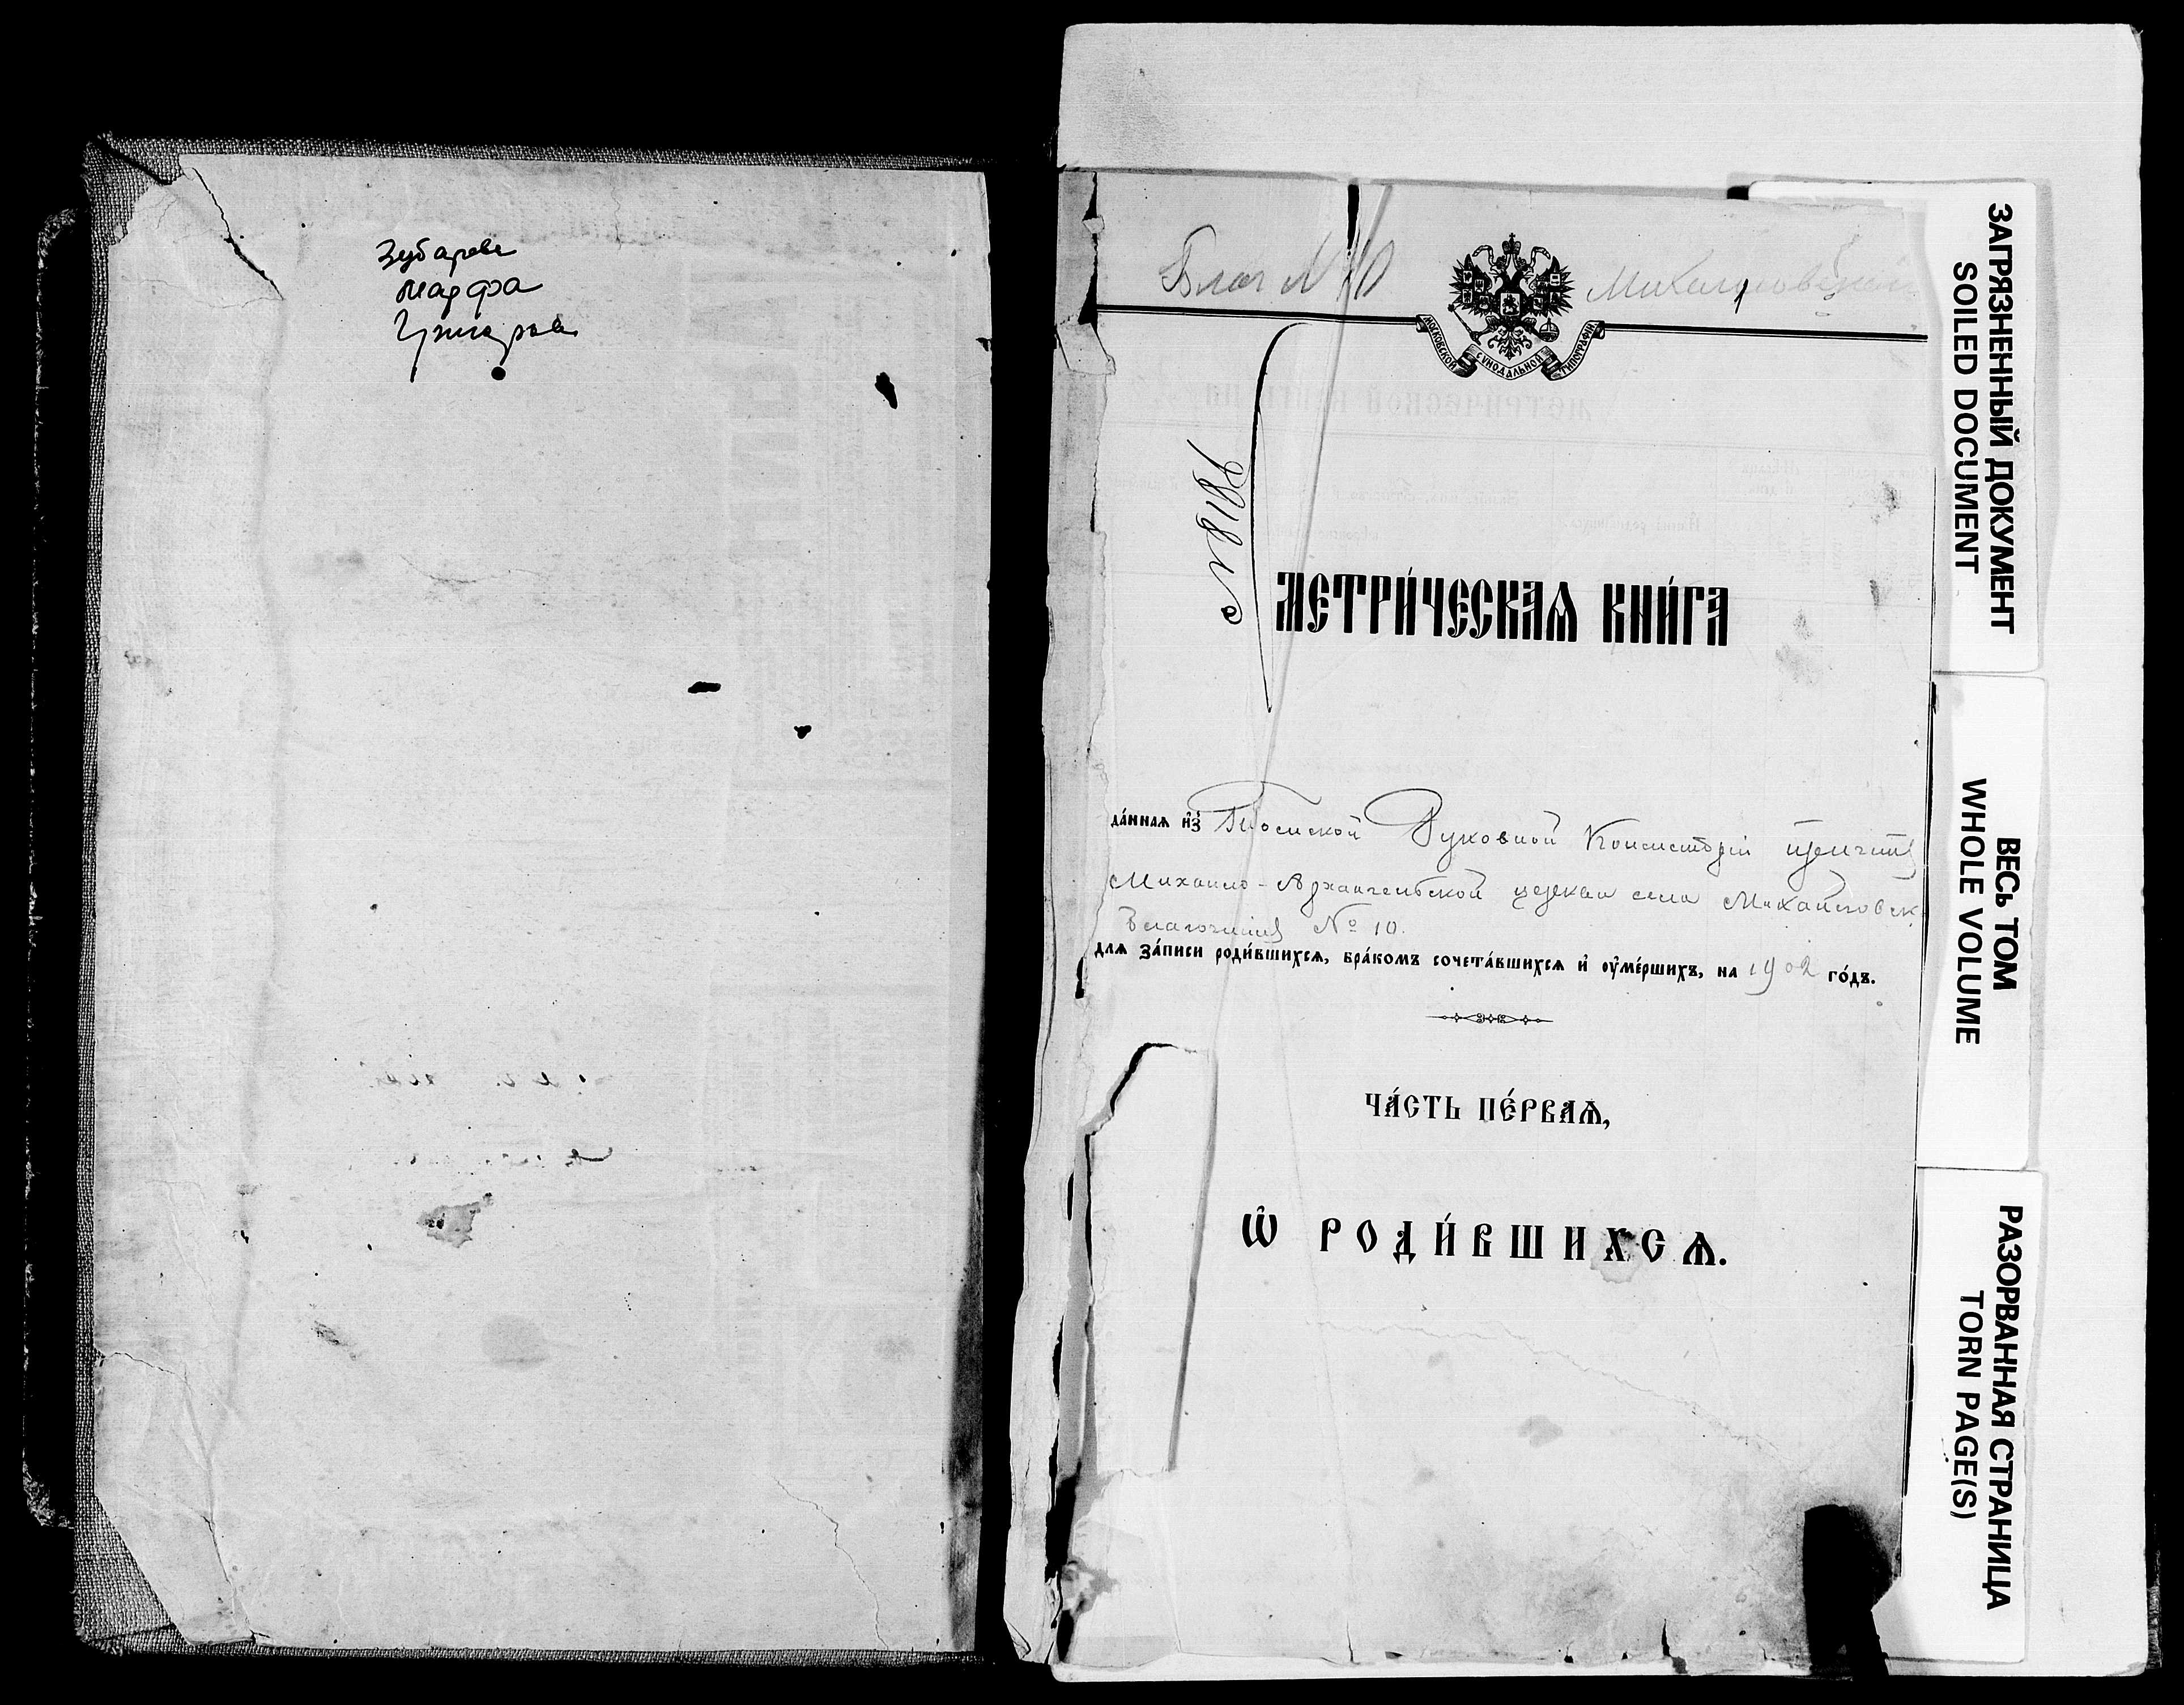 Зубарева
Марфа
Григорьев
Благ № 10 Михайловской
МОСКОВСКОЙ СѴНОДАЛЬНОЙ ТИПОГРАФІИ
МЕТРИ́ЧЕСКАѦ КНИ́ГА
да́ннаѧ и҆з̾ Томской Духовной Консисторіи причту
Михаило-Архангельской церкви села Михайловск
Благочинія № 10.
длѧ за́писи роди́вшихсѧ, бра́комъ сочета́вшихсѧ и҆ ᲂу҆ме́ршихъ, на 1902 го́дъ.
ЧА́СТЬ ПЕ́РВАѦ,
Ѽ РОДИ́ВШИХСѦ.
ЗАГРЯЗНЕННЫЙ ДОКУМЕНТ
SOILED DOCUMENT
ВЕСЬ ТОМ
WHOLE VOLUME
РАЗОРВАННАЯ СТРАНИЦА
TORN PAGE(S)